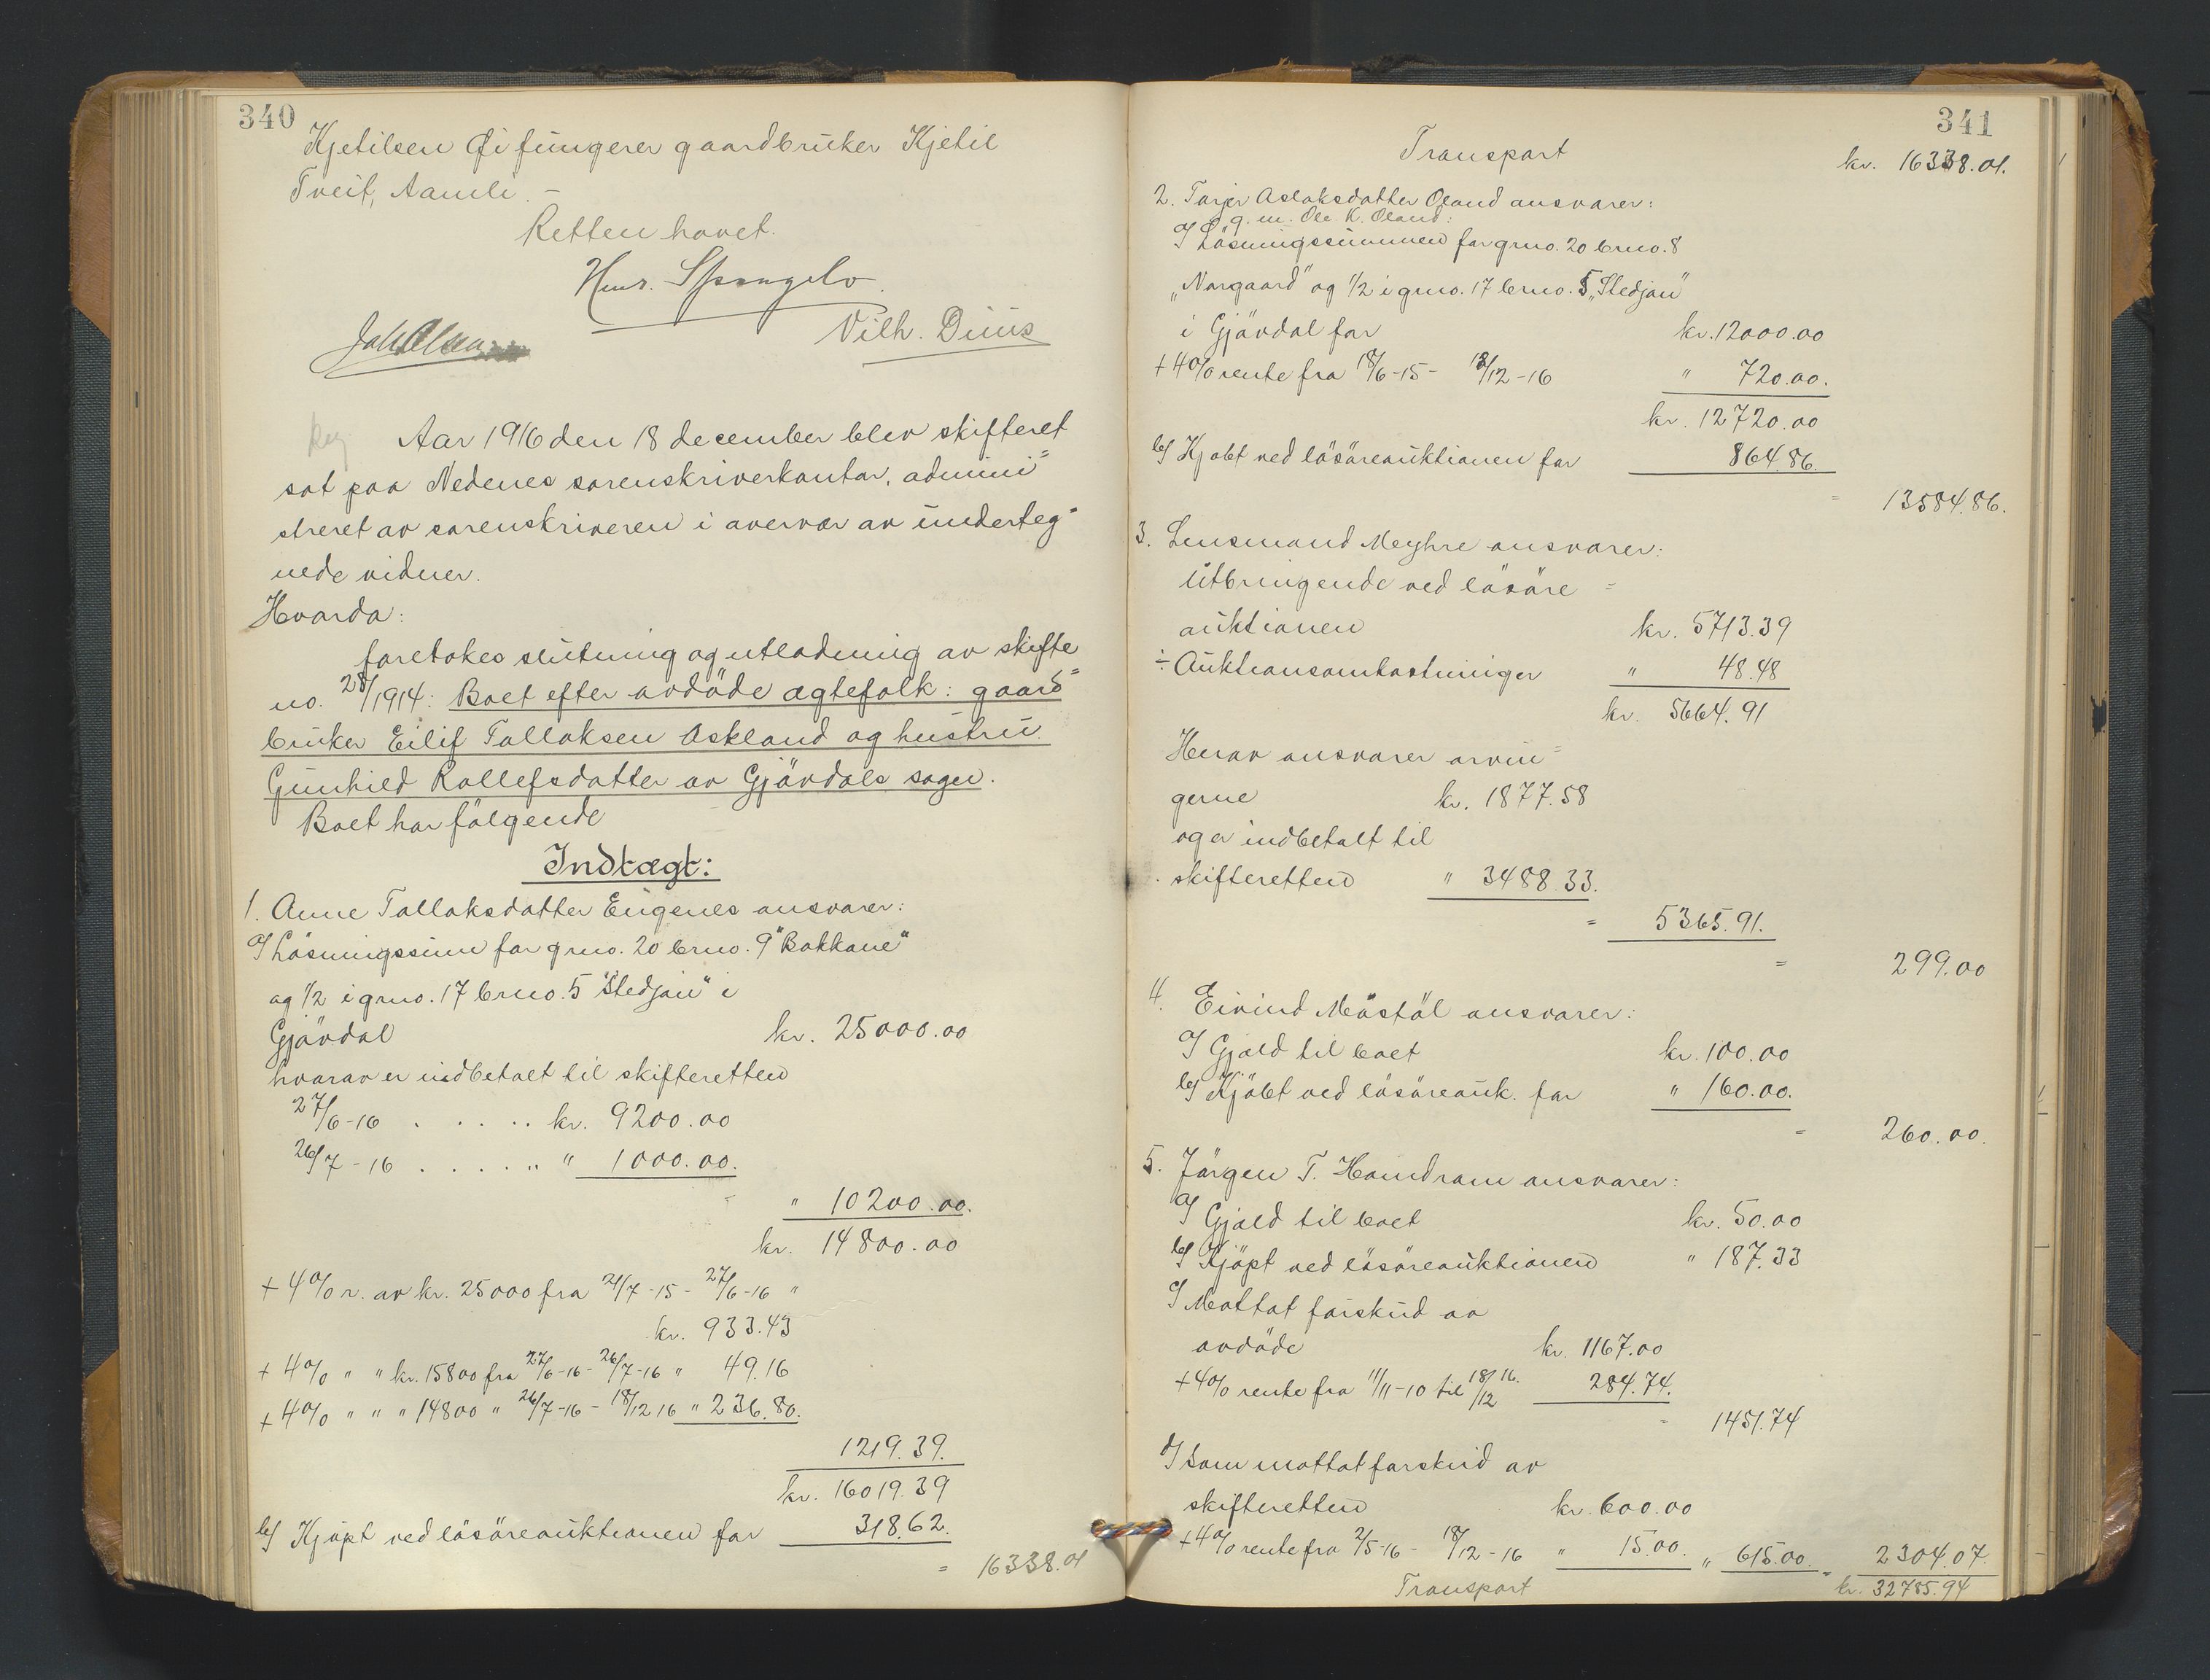 340
Kjetilsen Øi fungerer gaardbruker Kjetil
Tveit, Aamli. –
Retten hævet.
Vilh. Duus
Aar 1916 den 18 december blev skifteret
sat paa Nedenes sorenskriverkontor, admini=
streret av sorenskriveren i overvær av underteg=
nede vidner.
Hvorda:
foretokes slutning og utlodning av skifte
no. 28/1914: Boet efter avdöde ægtefolk: gaard=
bruker Eilif Tallaksen Askland og hustru
Gunhild Rollefsdatter av Gjövdals sogn.
Boet har fölgende
Indtægt:
1. Anne Tallaksdatter Engenes ansvarer:
a/ Lösningssum for grno. 20 brno. 9 "Bakkane"
og 1/2 i grno. 17 brno. 5 "Stedjan" i
Gjövdal kr. 25000.00
hvorav er indbetalt til skifteretten
27/6-16 . . . . . kr. 9200.00
26/7-16 . . . . „ " 1000.00.
= " 10200.00.
kr. 14800.00
+ 4% r. av kr. 25000 fra 21/7-15 - 27/6-16 "
kr. 933.43
+ 4% " " kr. 15800 fra 27/6-16 - 26/7-16 " 49.16
+ 4% " " " 14800 " 26/7-16 - 18/12 16 " 236.80.
1219.39.
kr. 16019.39
b/ Kjöpt ved lösöreauktionen for 318.62.
= 16338.01
341
Transport kr. 16338.01.
2. Tarjer Aslaksdatter Öland ansvarer:
g. m. Ole K. Öland:
a/ Lösningssummen for grno. 20 brno. 8
„Norgaard" og 1/2 i grno. 17 brno. 5 „Stedjan"
i Gjövdal for kr. 12000.00
+ 4% rente fra 18/6-15 - 18/12-16 " 720.00.
kr. 12720.00
b/ Kjöbt ved lösöreauktionen for 864.86.
= 13584.86.
3. Lensmand Meyhre ansvarer:
Utbringende ved lösöre=
auktionen kr. 5713.39
÷ Auktionsomkostninger " 48.48
kr. 5664.91
Herav ansvarer arvin=
gerne kr. 1877.58
og er indbetalt til
skifteretten " 3488.33.
= 5365.91.
= 299.00
4. Eivind Möstöl ansvarer:
a/ Gjæld til boet kr. 100.00
b/ Kjöbt ved lösöreauk. for " 160.00.
= 260.00.
5. Jörgen T. Homdrom ansvarer:
a/ Gjæld til boet kr. 50.00
b/ Kjöpt ved lösöreauktionen " 187.33
c/ Mottat forskud av
avdöde kr. 1167.00
+ 4% rente fra 11/11-10 til 18/12 16. 284.74.
= 1451.74
d/ Som mottat forskud av
skifteretten kr. 600.00
+ 4% rente fra 2/5-16 - 18/12-16 " 15.00. " 615.00. = 2304.07.
Transport kr. 32785.94